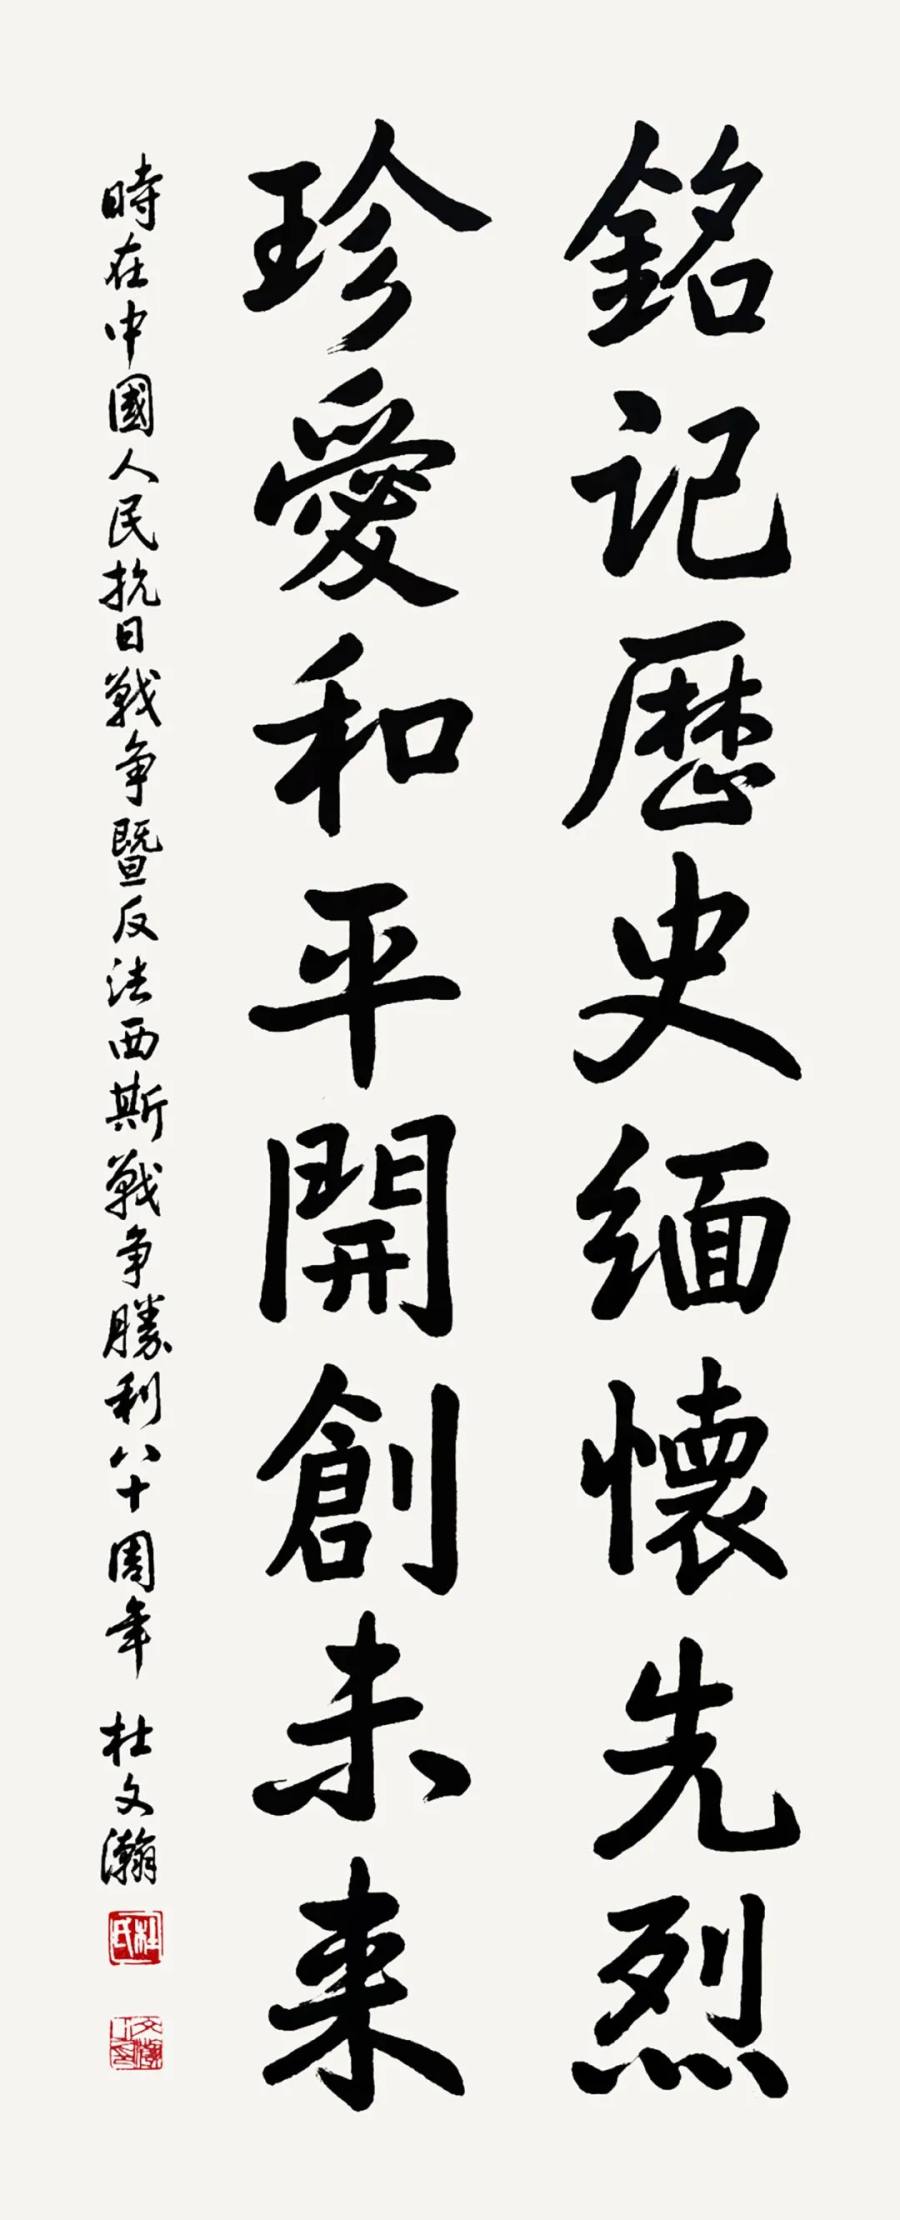 銘记歷史缅懷先烈
珍愛和平開創未来
時在中國人民抗日戰争暨反法西斯戰争勝利八十周年 杜文瀚
杜氏